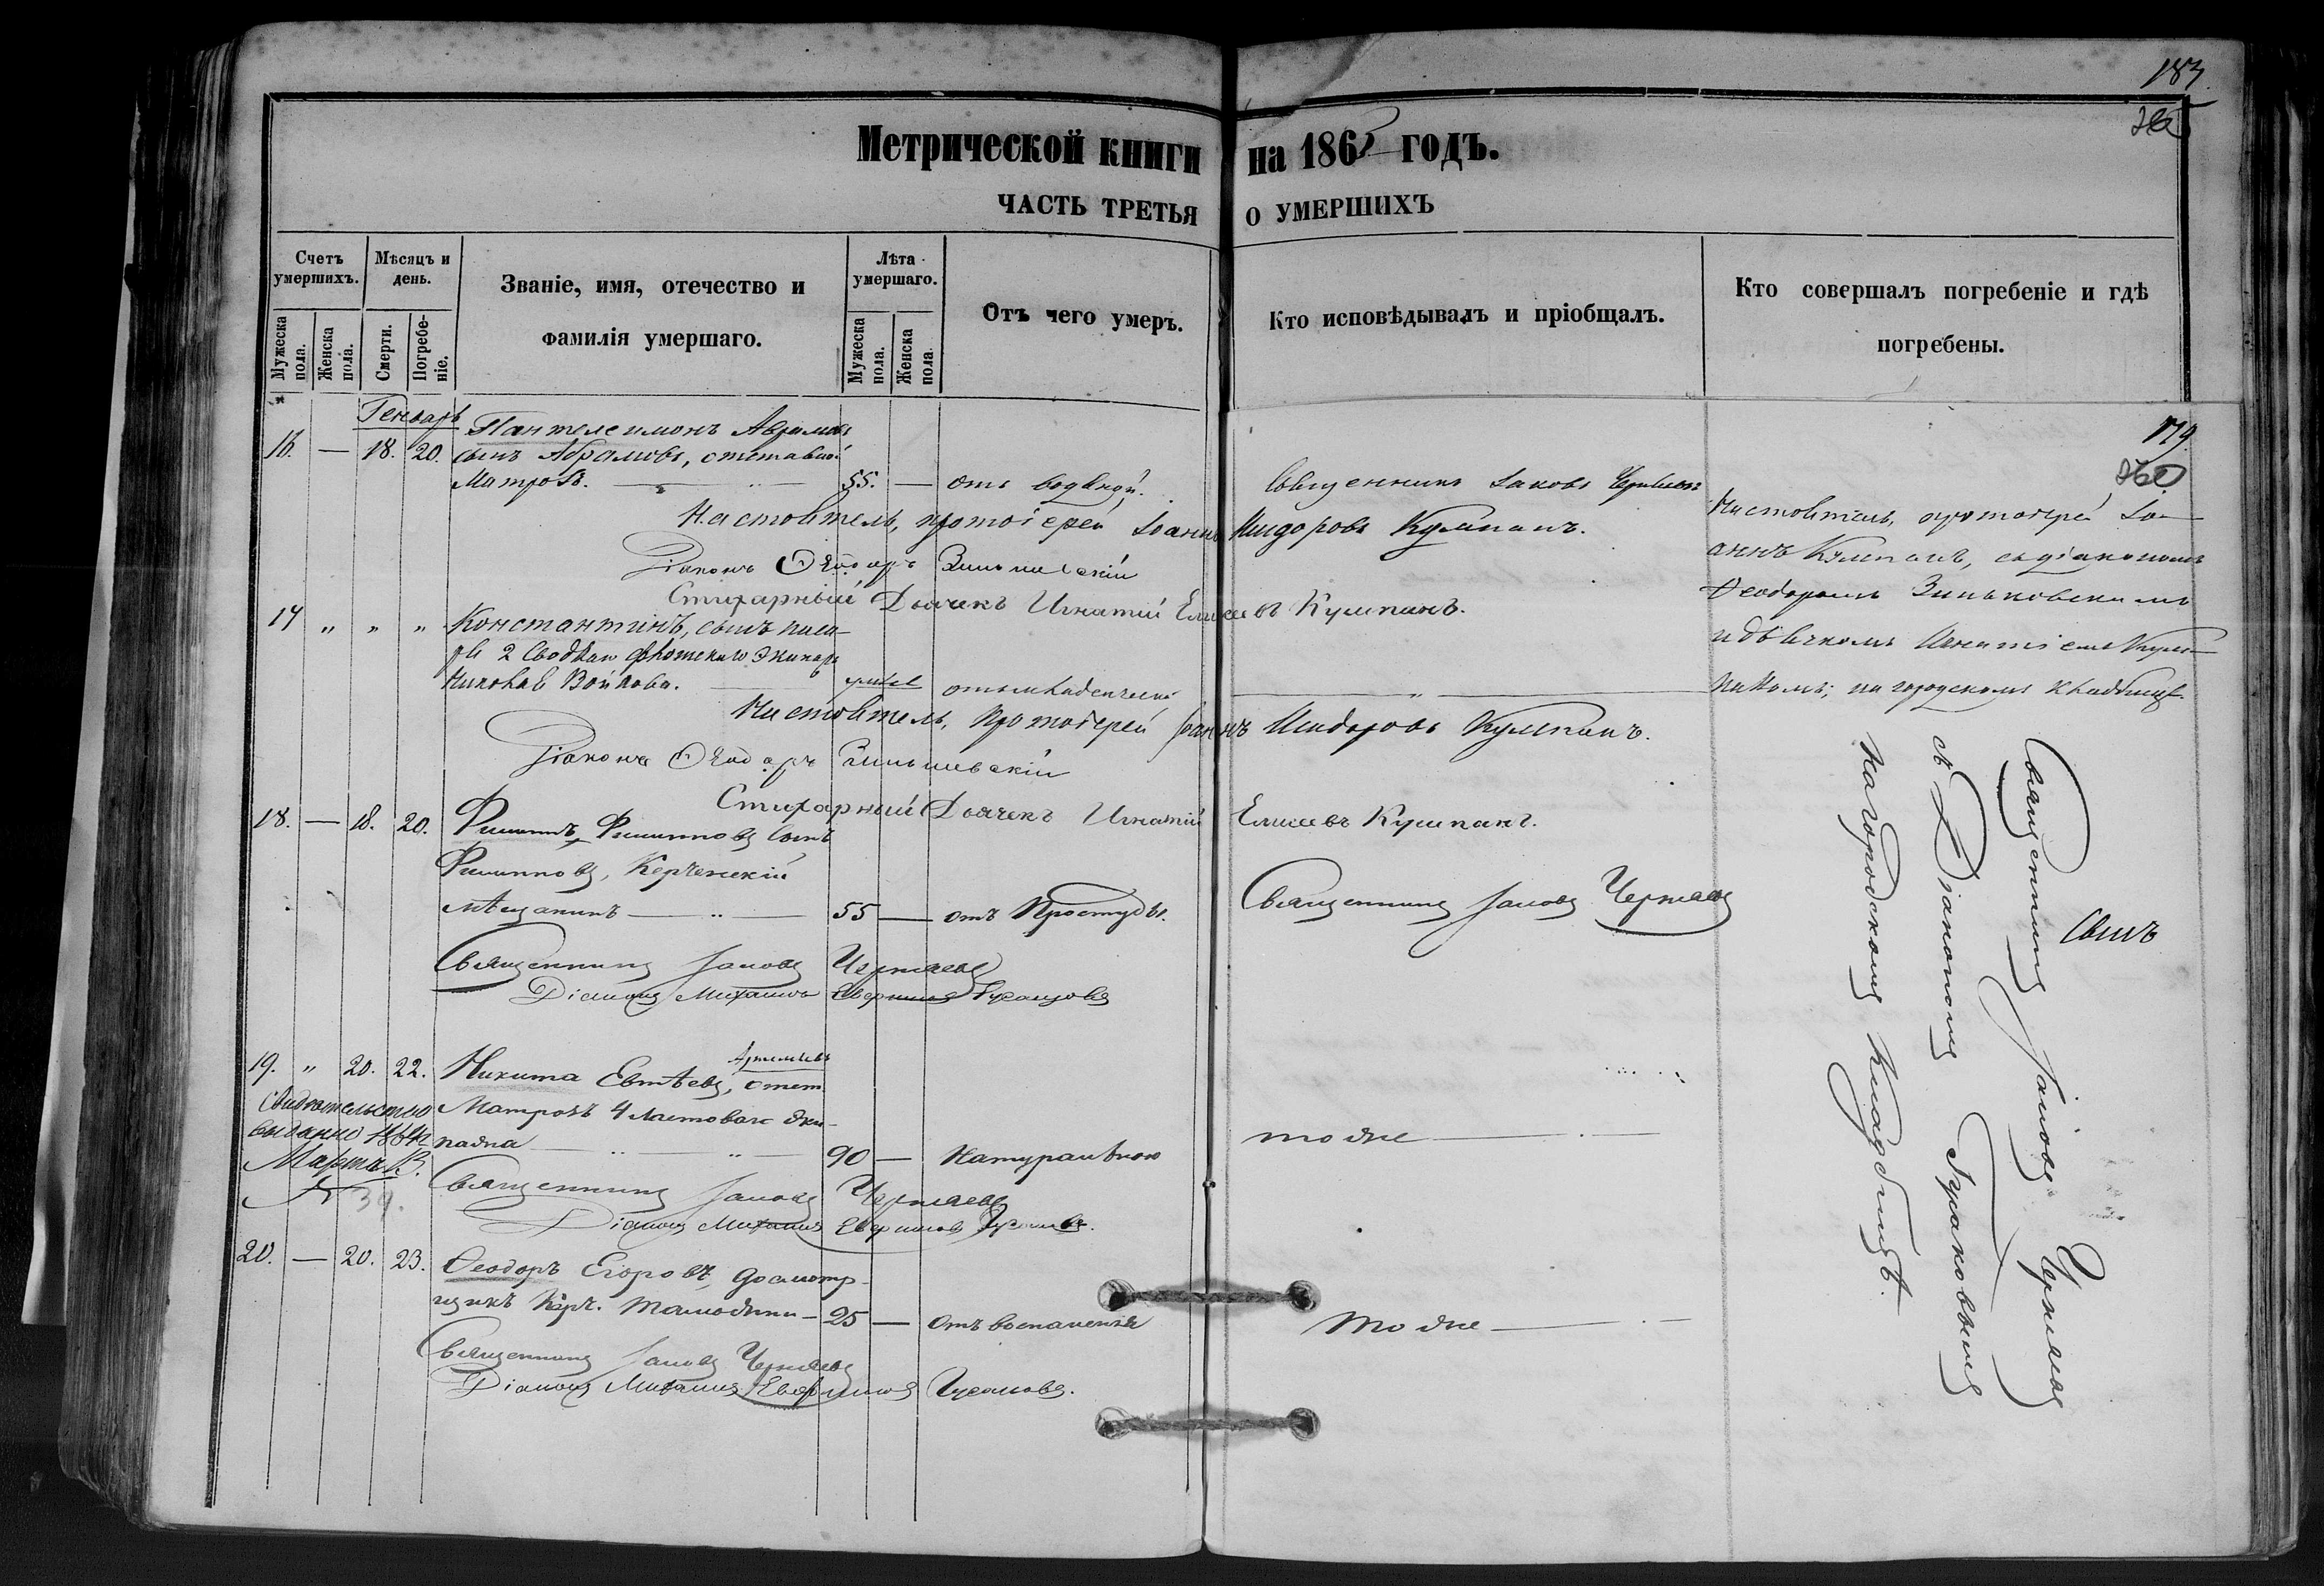 183.
Метрической книги на 186 годъ.
ЧАСТЬ ТРЕТЬЯ О УМЕРШИХЪ
Счетъ умершихъ.
Мѣсяцъ и день.
Званіе, имя, отечество и фамилія умершаго.
Лѣта умершаго.
Отъ чего умеръ.
Кто исповѣдывалъ и пріобщалъ.
Кто совершалъ погребеніе и гдѣ погребены.
Мужеска пола.
Женска пола.
Смерти.
Погребеніе.
Мужеска пола.
Женска пола
Генварь
16. — 18. 20. Пантелеимонъ Аврамовъ
сынъ Абрамовъ, отставной
Матрозъ. 55. — отъ водяной. Священникъ Іаковъ Черняевъ
179.
260
Настоятель, протоіерей Іоаннъ Исидоровъ Кумпанъ.
Діаконъ Ѳеодоръ Зиньковскій
Стихарный Дьячекъ Игнатій Елисеевъ Кумпанъ.
Настоятель, протоіерей Іоаннъ Кумпанъ, съ діакономъ
Ѳеодоромъ Зиньковскимъ
и дьячкомъ Игнатіемъ Кумпаномъ; на городскомъ кладбищѣ.
17 " " " Константинъ, сынъ писаря 2 Своднаго флотскаго Экипажа
Николая Войнова. отъ младенческой
Настоятель, Протоіерей Іоаннъ Исидоровъ Кумпанъ.
Діаконъ Ѳеодоръ Зиньковскій
Стихарный Дьячекъ Игнатій Елисеевъ Кумпанъ.
18. — 18. 20. Филиппъ Филипповъ сынъ
Филипповъ, Керченскій
мѣщанинъ 55 — отъ Простуды. Священникъ Іаковъ Черняевъ
Священникъ Іаковъ Черняевъ
Діаконъ Михаилъ Гусаковъ
19. " 20. 22. Никита Евтѣевъ, Артемьевъ отст.
Матрозъ 4 Ластоваго экипажа 90 — Натуральною тоже
Свидѣтельство
выдано 1864
Марта 13.
№ 39.
Священникъ Іаковъ Черняевъ
Діаконъ Михаилъ Гусаковъ.
20. — 20. 23. Ѳеодоръ Егоровъ, досмотрщикъ Керч. таможни — 25 — Отъ воспаленія тоже
Священникъ Іаковъ Черняевъ
Діаконъ Михаилъ Гусаковъ.
Сынъ
Священникъ Іаковъ Черняевъ
съ Діакономъ Гусаковымъ
на городскомъ Кладбищѣ.